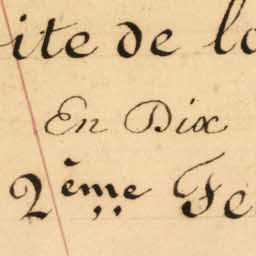 ite de lo
En Dix
2ème Fe